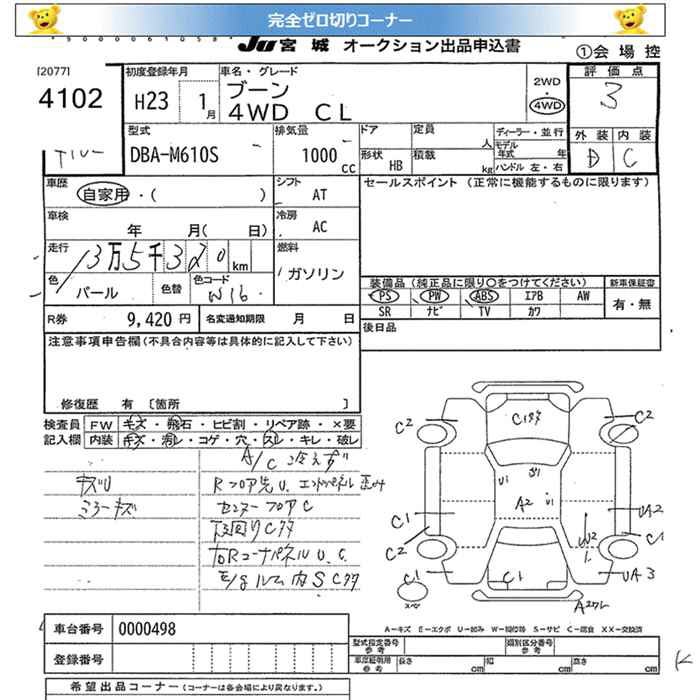 完全ゼロ切りコーナー
JU 宮城 オークション出品申込書
①会場控
[2077]
4102
初度登録年月
H23 1月
車名・グレード
ブーン
4WD CL
2WD
・
4WD
評価点
3
外装 内装
D C
型式
DBA-M610S
排気量
1000 cc
ドア
定員
人
形状 HB
積載
kg
ディーラー・並行
モデル年式 年
ハンドル 左・右
車歴
自家用・( )
シフト
AT
セールスポイント (正常に機能するものに限ります)
車検
年 月( 日)
冷房
AC
走行
13万5千320 km
燃料
ガソリン
色
パール
色替
色コード
W16
装備品 (純正品に限り○をつけてください)
新車保証書
PS PW ABS エアB AW
有・無
SR ナビ TV カワ
R券 9,420円
名変通知期限 月 日
後日品
注意事項申告欄(不具合内容等は具体的に記入して下さい)
修復歴 有 〔箇所 〕
検査員記入欄
FW キズ・飛石・ヒビ割・リペア跡・×要
内装 キズ・汚レ・コゲ・穴・スレ・キレ・破レ
A/C 冷えず
キズU
Rフロア先U. エンドパネル歪み
ミラーキズ
センターフロアC
下回りCサ
右RコーナパネルU.C.
E/gルーム内SCサ
C2 C2
U1
A2
C1 UA2
C2 C1
C1 C1 UA3
スペア
A-キズ E-エクボ U-凹み W-補修跡 S-サビ C-腐食 XX-交換済
車台番号 0000498
型式指定番号 参考
類別区分番号 参考
登録番号
車庫証明用 参考
長さ cm
幅 cm
高さ cm
希望出品コーナー (コーナーは各会場により異なります。)